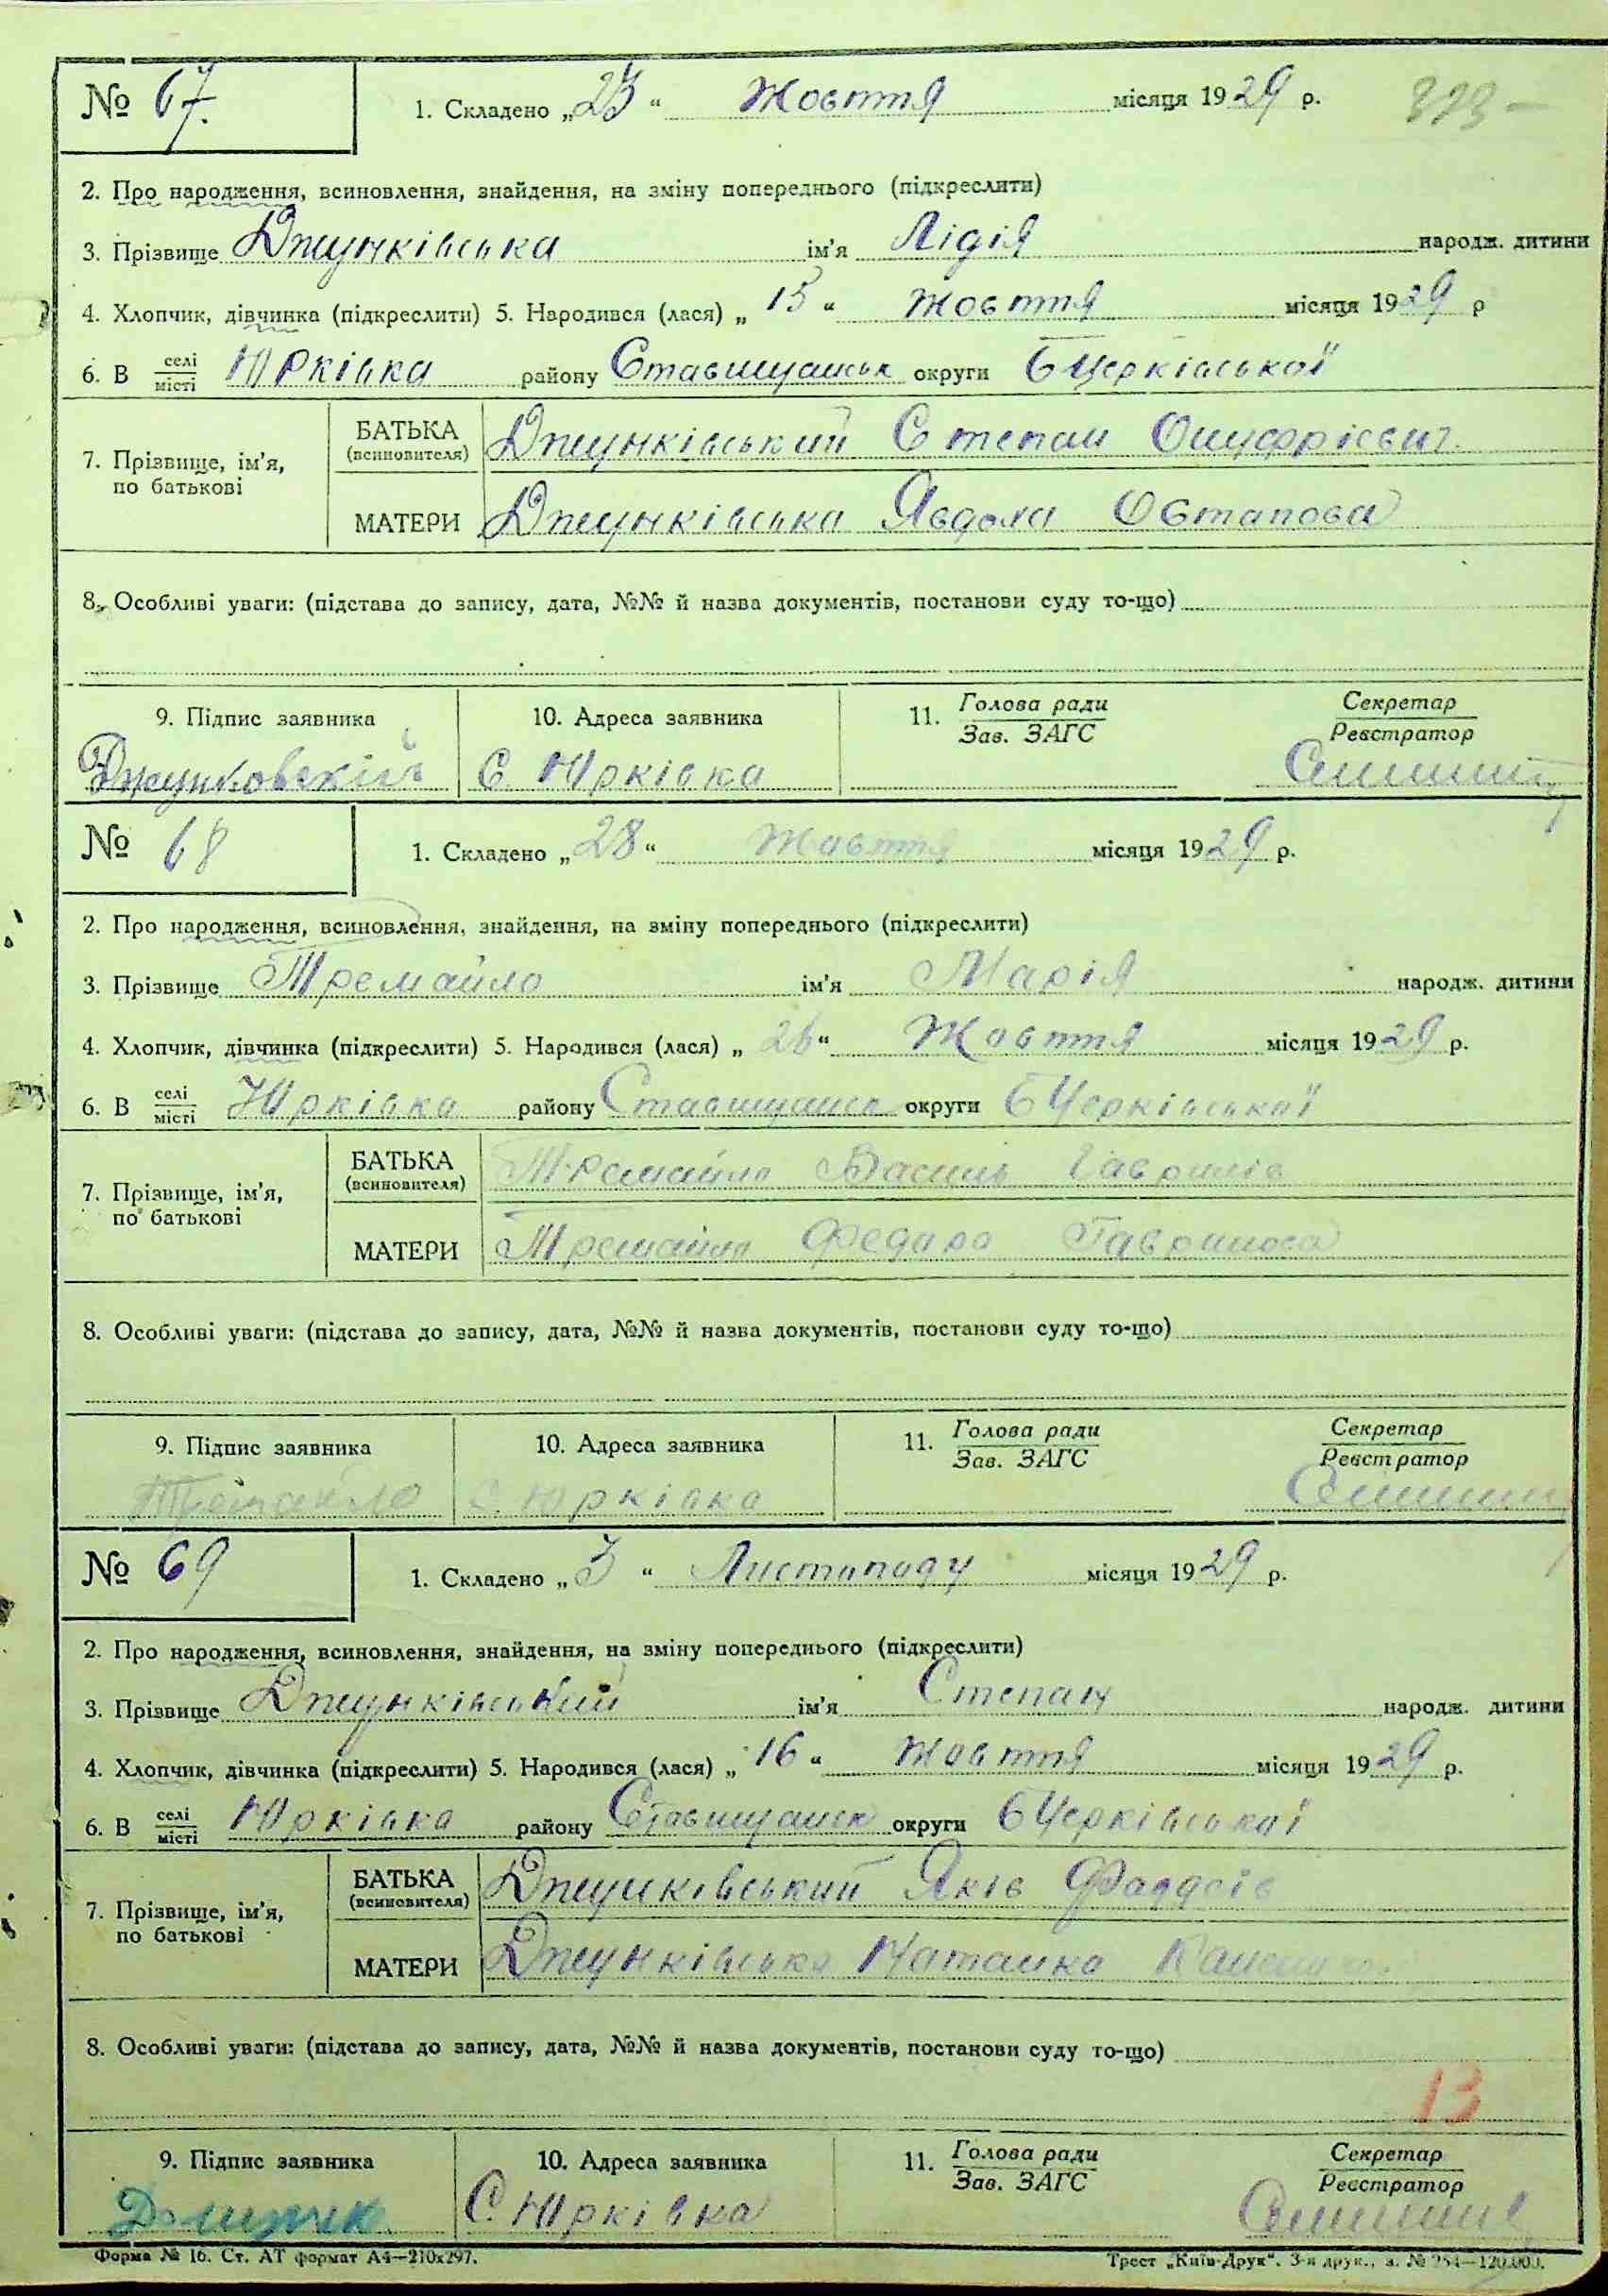 № 67. 1. Складено „23“ Жовття місяця 1929 р.
2. Про народження, всиновлення, знайдення, на зміну попереднього (підкреслити)
3. Прізвище Джунківська ім’я Лідія народж. дитини
4. Хлопчик, дівчинка (підкреслити) 5. Народився (лася) „15“ жовття місяця 1929 р
6. В селі/місті Юрківка району Ставищанськ округи БЦерківської
7. Прізвище, ім’я, по батькові
БАТЬКА (всиновителя) Джунківський Степан Онуфрієвич.
МАТЕРИ Джунківська Явдоха Остапова
8. Особливі уваги: (підстава до запису, дата, №№ й назва документів, постанови суду то-що)
9. Підпис заявника 10. Адреса заявника 11. Голова ради/Зав. ЗАГС Секретар/Реєстратор
Джунковскій С. Юрківка
№ 68 1. Складено „28“ Жовття місяця 1929 р.
2. Про народження, всиновлення, знайдення, на зміну попереднього (підкреслити)
3. Прізвище Тремайло ім’я Марія народж. дитини
4. Хлопчик, дівчинка (підкреслити) 5. Народився (лася) „26“ Жовття місяця 1929 р.
6. В селі/місті Юрківка району Ставищанськ округи БЦерківської
7. Прізвище, ім’я, по батькові
БАТЬКА (всиновителя) Тремайло Василь Гаврилів
МАТЕРИ Тремайло Федора
8. Особливі уваги: (підстава до запису, дата, №№ й назва документів, постанови суду то-що)
9. Підпис заявника 10. Адреса заявника 11. Голова ради/Зав. ЗАГС Секретар/Реєстратор
Тремайло С. Юрківка
№ 69 1. Складено „3“ Листопаду місяця 1929 р.
2. Про народження, всиновлення, знайдення, на зміну попереднього (підкреслити)
3. Прізвище Джунківський ім’я Степан народж. дитини
4. Хлопчик, дівчинка (підкреслити) 5. Народився (лася) „16“ жовття місяця 1929 р.
6. В селі/місті Юрківка району Ставищанск округи БЦерківської
7. Прізвище, ім’я, по батькові
БАТЬКА (всиновителя) Джунківський Яків Фаддеів
МАТЕРИ Джунківська Наталка
8. Особливі уваги: (підстава до запису, дата, №№ й назва документів, постанови суду то-що)
13
9. Підпис заявника 10. Адреса заявника 11. Голова ради/Зав. ЗАГС Секретар/Реєстратор
С. Юрківка
Форма № 16. Ст. АТ формат А4—210х297. Трест „Київ-Друк“. 3-я друк., з. № 254—120.000.